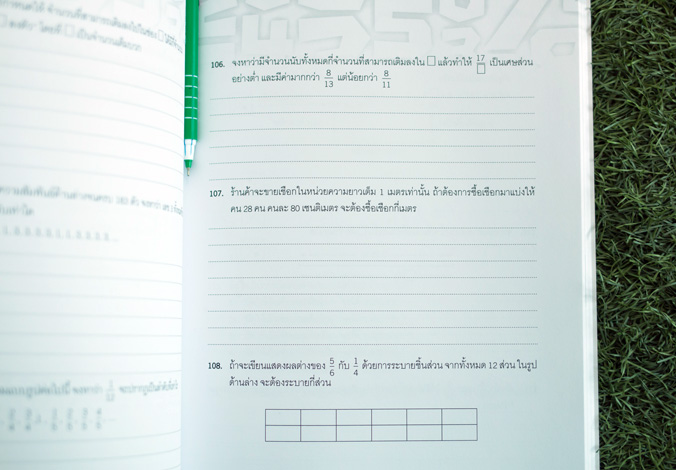 106. จงหาว่ามีจำนวนนับทั้งหมดกี่จำนวนที่สามารถเติมลงใน □ แล้วทำให้ 17/□ เป็นเศษส่วน
อย่างต่ำ และมีค่ามากกว่า 8/13 แต่น้อยกว่า 8/11
107. ร้านค้าจะขายเชือกในหน่วยความยาวเต็ม 1 เมตรเท่านั้น ถ้าต้องการซื้อเชือกมาแบ่งให้
คน 28 คน คนละ 80 เซนติเมตร จะต้องซื้อเชือกกี่เมตร
108. ถ้าจะเขียนแสดงผลต่างของ 5/6 กับ 1/4 ด้วยการระบายชิ้นส่วน จากทั้งหมด 12 ส่วน ในรูป
ด้านล่าง จะต้องระบายกี่ส่วน